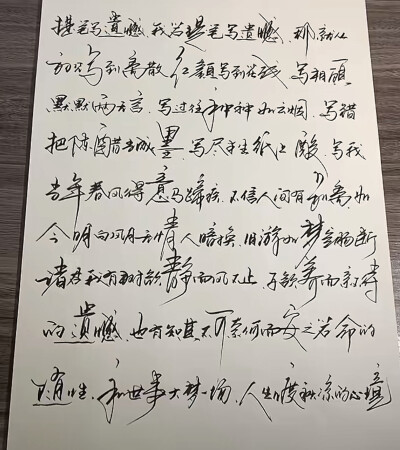 提笔写遗憾,我若提笔写遗憾,那就从
初见写到离散,红颜写到花残,写相顾
默默两无言,写过往种种如云烟,写错
把陈醋当成墨,写尽半生纸上酸,写我
当年春风得意马蹄疾,不信人间有别离,如
今明白风月无情人暗换,旧游如梦空肠断
诸君我有那树欲静而风不止,子欲养而亲不待
的遗憾,也有知其不可奈何而安之若命的
随性,和世事大梦一场,人生几度秋凉的心境